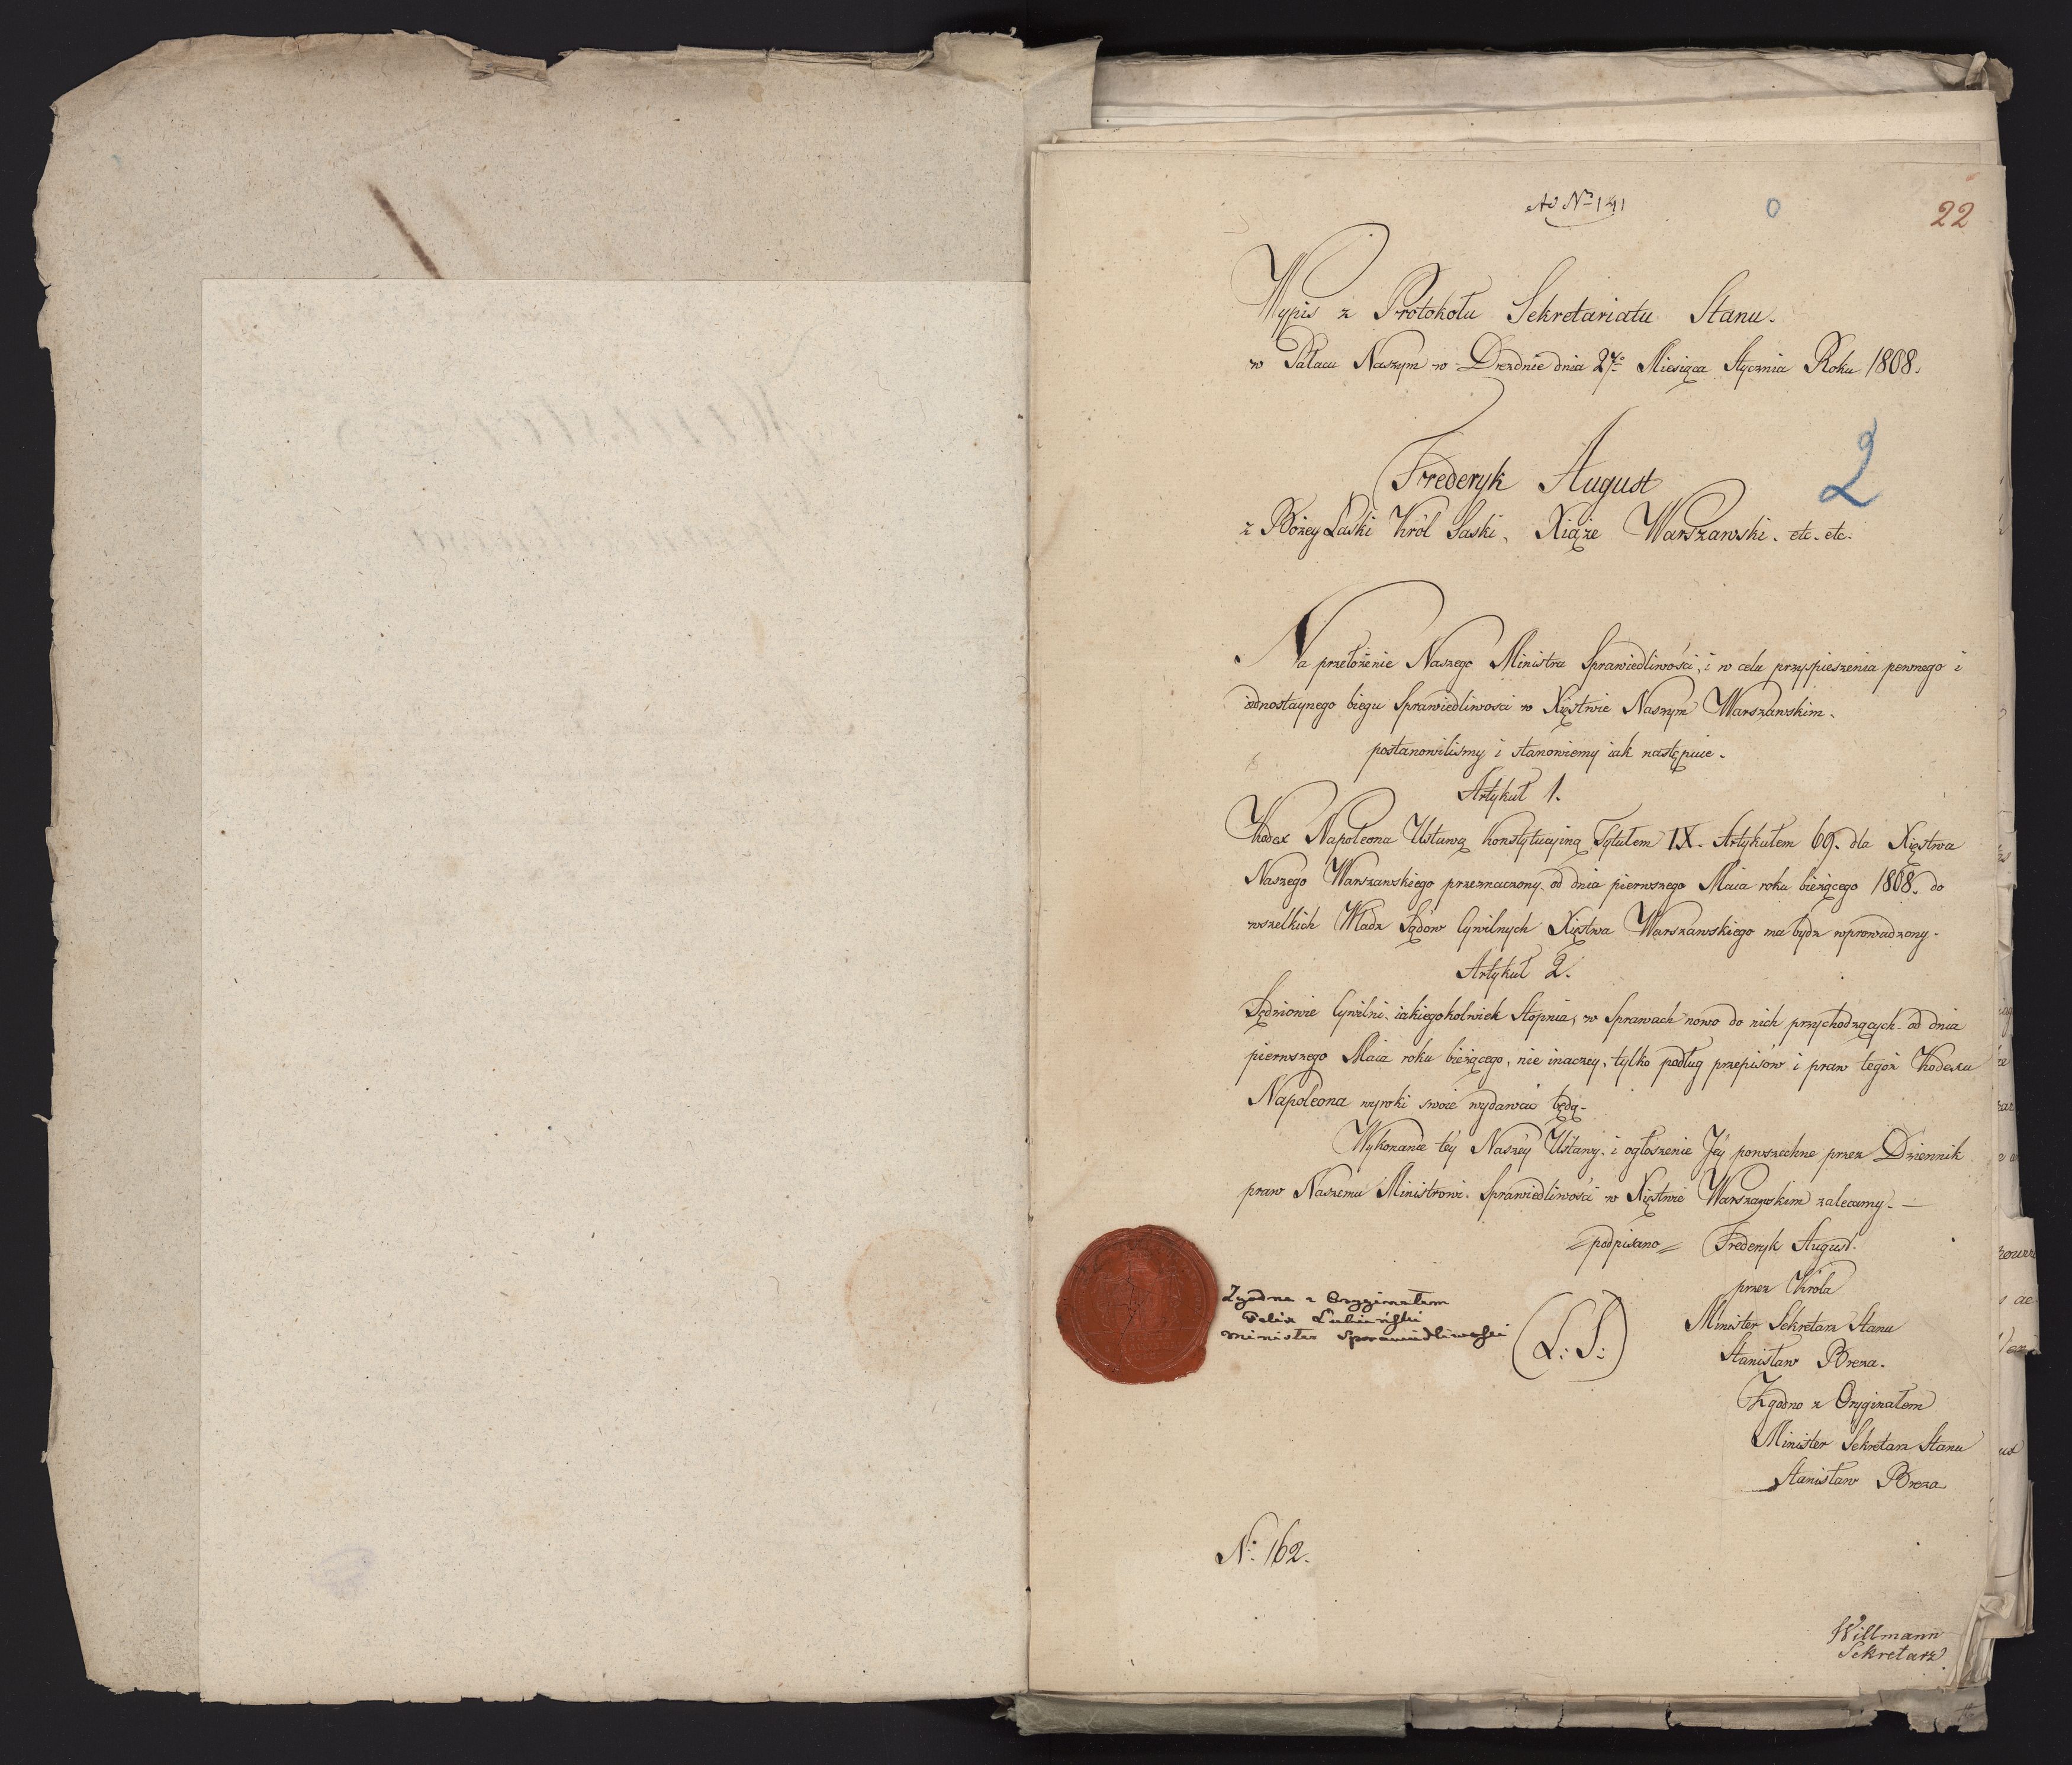 Ad Nr 141
22
Wypis z Protokołu Sekretariatu Stanu.
w Pałacu Naszym w Dreznie dnia 27o Miesiąca Stycznia Roku 1808.
Frederyk August
2
z Bożey Łaski Król Saski, Xiąże Warszawski. etc. etc.
Na przełożenie Naszego Ministra Sprawiedliwości, i w celu przyspieszenia pewnego i
iednostaynego biegu Sprawiedliwosci w Xięstwie Naszym Warszawskim.
postanowilismy i stanowiemy iak następuie.
Artykuł 1.
Kodex Napoleona Ustawą Konstytucyiną Tytułem IX. Artykułem 69. dla Xięstwa
Naszego Warszawskiego przeznaczony. od dnia pierwszego Maia roku bieżącego 1808. do
wszelkich Władz Sądów Cywilnych Xięstwa Warszawskiego ma bydz wprowadzony.
Artykuł 2.
Sędziowie Cywilni. iakiegokolwiek Stopnia, w Sprawach nowo do nich przychodzących. od dnia
pierwszego Maia roku bieżącego, nie inaczey, tylko podług przepisów i praw tegoż Kodexu
Napoleona wyroki swoie wydawać będą.
Wykonanie téy Naszéy Ustawy. i ogłoszenie Jéy powszechne przez Dziennik
praw Naszemu Ministrowi. Sprawiedliwości w Xięstwie Warszawskim zalecamy. —
= podpisano = Frederyk August.
przez Króla
Minister Sekretarz Stanu
Stanisław Breza.
(L: S:)
Zgodno z Oryginałem
Minister Sekretarz Stanu
Stanisław Breza
Zgodne z Oryginałem
Felix Lubieński
Minister Sprawiedliwości
No: 162.
Willmann
Sekretarz